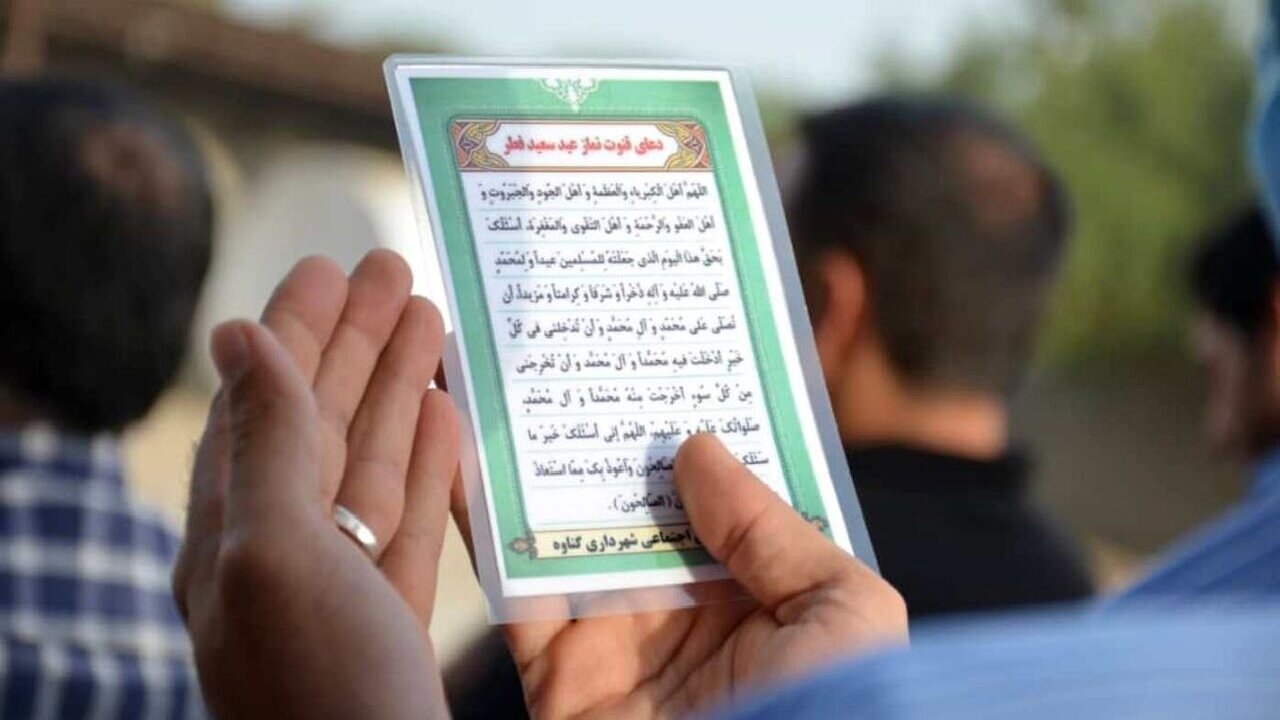 دعای قنوت نماز عید سعید فطر
اَللّهُمَّ اَهْلَ الْکِبْرِیاءِ وَالْعَظَمَةِ وَ اَهْلَ الْجُودِ وَالْجَبَرُوتِ وَ
اَهْلَ الْعَفْوِ وَالرَّحْمَةِ وَ اَهْلَ التَّقْوی وَالْمَغْفِرَةِ، اَسْئَلُکَ
بِحَقِّ هذَا الْیَومِ الَّذی جَعَلْتَهُ لِلْمُسْلِمینَ عیداً وَ لِمُحَمَّدٍ
صَلَّی اللهُ عَلَیْهِ وَ آلِهِ ذُخْراً وَ شَرَفاً وَ کِرامَتاً وَ مَزیداً، اَن
تُصَلّی عَلی مُحَمَّدٍ وَ آلِ مُحَمَّدٍ وَ اَنْ تُدْخِلَنی فی کُلِّ
خَیْرٍ اَدْخَلْتَ فیهِ مُحَمَّداً وَ آلَ مُحَمَّدٍ وَ اَنْ تُخْرِجَنی
مِنْ کُلِّ سُوءٍ اَخْرَجْتَ مِنْهُ مُحَمَّداً وَ آلَ مُحَمَّدٍ،
صَلَواتُکَ عَلَیْهِ وَ عَلَیْهِمْ، اَللّهُمَّ اِنّی اَسْئَلُکَ خَیْرَ ما
سَئَلَکَ الصّالِحُونَ وَ اَعُوذُ بِکَ مِمَّا اسْتَعاذَ
(الصّالِحُونَ).
اجتماعی شهرداری گناوه